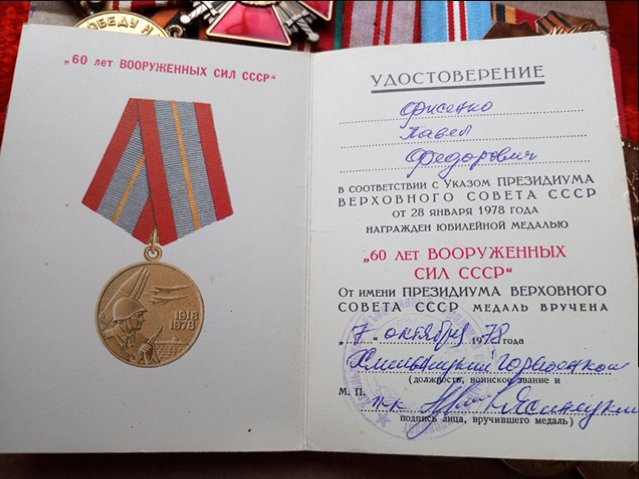 ПОБЕДУ Н
„60 лет ВООРУЖЕННЫХ СИЛ СССР“
1918
1978
УДОСТОВЕРЕНИЕ
Фисенко
Павел
Федорович
В СООТВЕТСТВИИ С УКАЗОМ ПРЕЗИДИУМА
ВЕРХОВНОГО СОВЕТА СССР
ОТ 28 ЯНВАРЯ 1978 ГОДА
НАГРАЖДЕН ЮБИЛЕЙНОЙ МЕДАЛЬЮ
„60 ЛЕТ ВООРУЖЕННЫХ
СИЛ СССР“
ОТ ИМЕНИ ПРЕЗИДИУМА ВЕРХОВНОГО
СОВЕТА СССР МЕДАЛЬ ВРУЧЕНА
„7“ октября 1978 года
Хмельницкий
(должность, воинское звание и
М. П.
подпись лица, вручившего медаль)